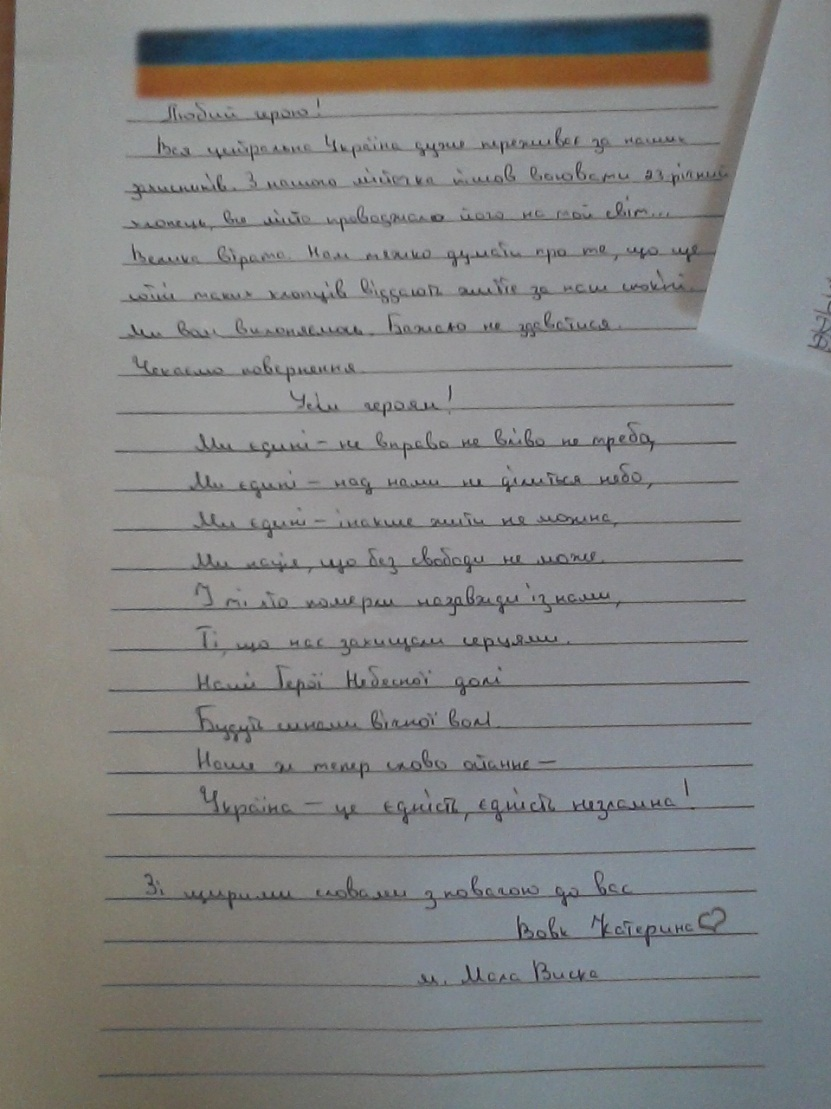 Любий герою!
Вся центральна Україна дуже переживає за наших
захисників. З нашого містечка пішов воювати 23 річний
хлопець, все місто проводжало його на той світ...
Велика втрата. Нам тяжко думати про те, що ще
такі таких хлопців віддають життє за наш спокій.
Ми вам вклоняємось. Бажаю не здаватися.
Чекаємо повернення.
Усім героям!
Ми єдині – не вправо не вліво не треба,
Ми єдині – над нами не ділиться небо,
Ми єдині – інакше жити не можна,
Ми нація, що без свободи не може.
І ті хто померли назавжди із нами,
Ті, що нас захищали серцями.
Наші Герої Небесної долі
Будуть синами вічної волі
Наше ж тепер слово останнє –
Україна – це єдність, єдність незламна!
Зі щирими словами з повагою до вас
Вовк Катерина
м. Мала Виска